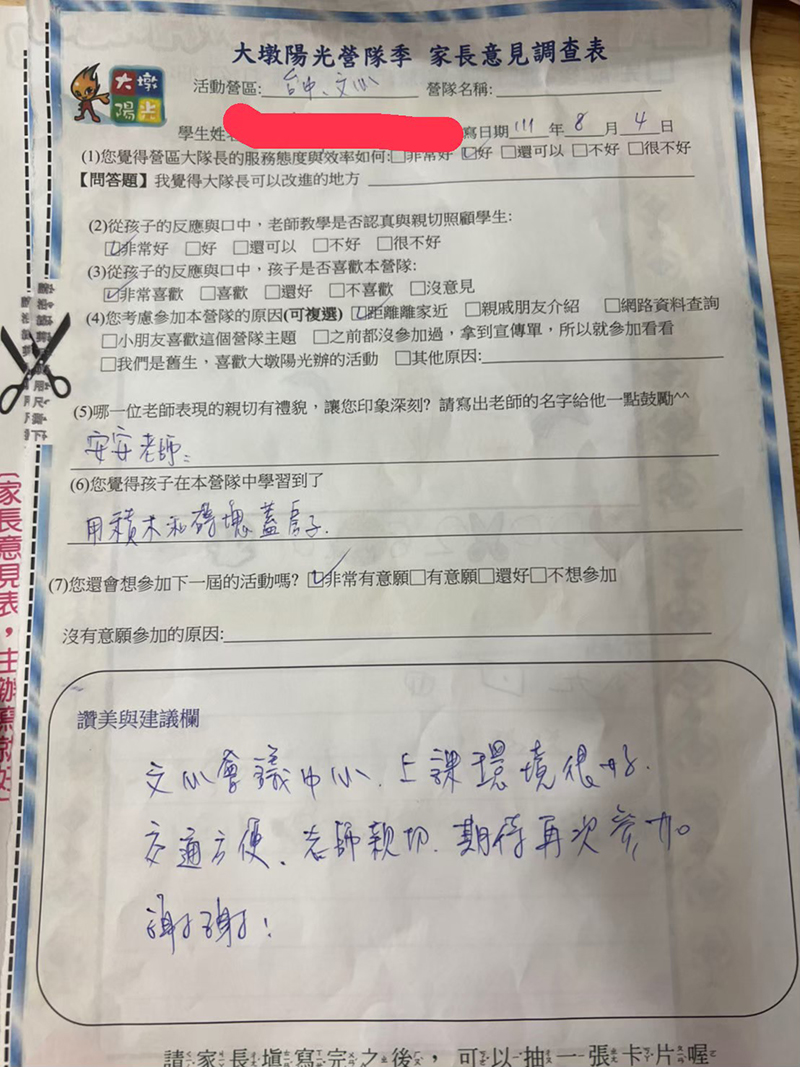 大墩陽光營隊季 家長意見調查表
大墩
陽光
活動營區: 台中、文心 營隊名稱:
學生姓 寫日期 111 年 8 月 4 日
(1)您覺得營區大隊長的服務態度與效率如何:□非常好 ☑好 □還可以 □不好 □很不好
【問答題】我覺得大隊長可以改進的地方
(2)從孩子的反應與口中，老師教學是否認真與親切照顧學生:
☑非常好 □好 □還可以 □不好 □很不好
(3)從孩子的反應與口中，孩子是否喜歡本營隊:
☑非常喜歡 □喜歡 □還好 □不喜歡 □沒意見
(4)您考慮參加本營隊的原因(可複選) ☑距離離家近 □親戚朋友介紹 □網路資料查詢
□小朋友喜歡這個營隊主題 □之前都沒參加過，拿到宣傳單，所以就參加看看
□我們是舊生，喜歡大墩陽光辦的活動 □其他原因:
(5)哪一位老師表現的親切有禮貌，讓您印象深刻? 請寫出老師的名字給他一點鼓勵^^
安安老師:
(6)您覺得孩子在本營隊中學習到了
用積木和磚塊蓋房子.
(7)您還會想參加下一屆的活動嗎? ☑非常有意願□有意願□還好□不想參加
沒有意願參加的原因:
讚美與建議欄
文心會議中心、上課環境很好.
交通方便、老師親切. 期待再次參加
謝謝!
請家長填寫完之後，可以抽一張卡片喔
(家長意見表，